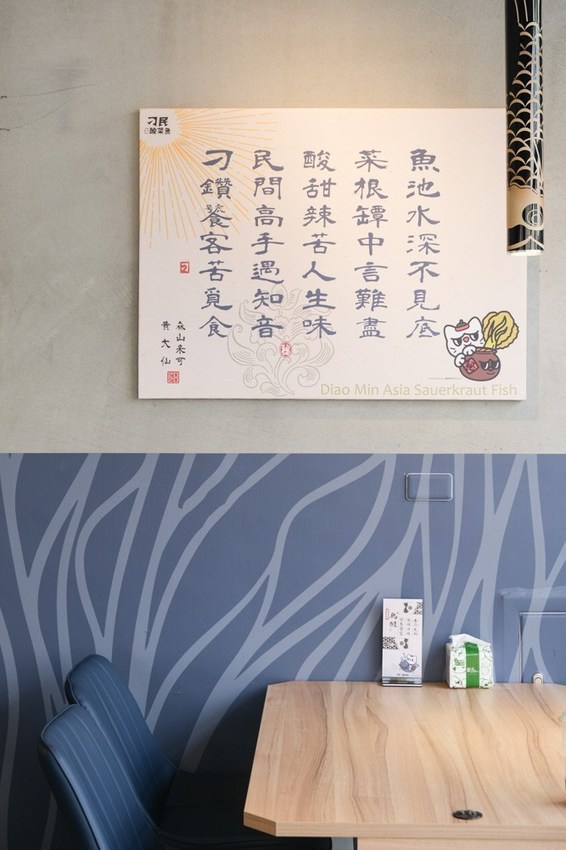 刁民
酸菜魚
刁鑽饕客苦覓食
民間高手遇知音
酸甜辣苦人生味
菜根罈中言難盡
魚池水深不見底
Diao Min Asia Sauerkraut Fish